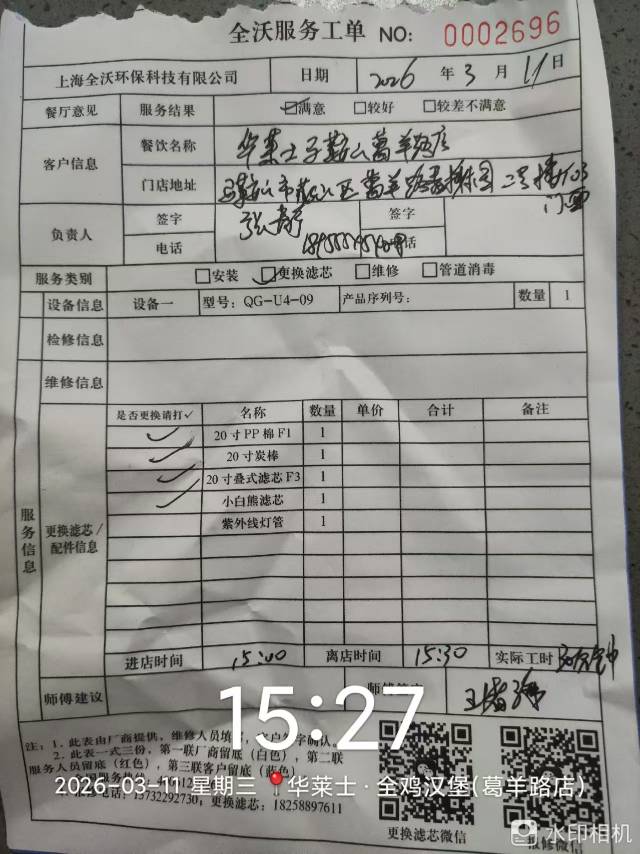 全沃服务工单 NO: 0002696
上海全沃环保科技有限公司 日期 2026 年 3 月 11 日
餐厅意见 服务结果 ☑满意 ☐较好 ☐较差不满意
客户信息 餐饮名称 华莱士 葛羊路店
门店地址 马鞍山市 葛羊路 门面
负责人 签字 签字
电话 电话
服务类别 ☐安装 ☑更换滤芯 ☐维修 ☐管道消毒
设备信息 设备一 型号: QG-U4-09 产品序列号: 数量 1
检修信息
维修信息
服务信息 更换滤芯/配件信息
是否更换请打✓ 名称 数量 单价 合计 备注
✓ 20寸PP棉F1 1
✓ 20寸炭棒 1
✓ 20寸叠式滤芯F3 1
✓ 小白熊滤芯 1
紫外线灯管 1
进店时间 15:00 离店时间 15:30 实际工时
师傅建议 师傅签字
15:27
注: 1. 此表由厂商提供, 维修人员填写, 客户签字确认。
2. 此表一式三份, 第一联厂商留底(白色), 第二联
服务人员留底(红色), 第三联客户留底(蓝色)
2026-03-11 星期三 华莱士·全鸡汉堡(葛羊路店)
电话: 15732292730, 更换滤芯: 18258897611
更换滤芯微信 报修微信
水印相机